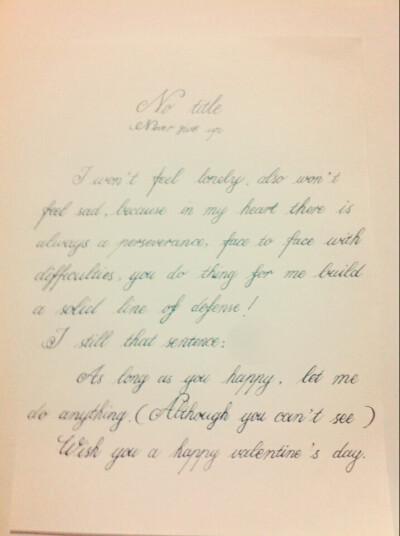 No title
Never give up
I won't feel lonely, also won't
feel sad, because in my heart there is
always a perseverance, face to face with
difficulties, you do thing for me build
a solid line of defense!
I still that sentence:
As long as you happy, let me
do anything. (Although you can't see)
Wish you a happy valentine's day.